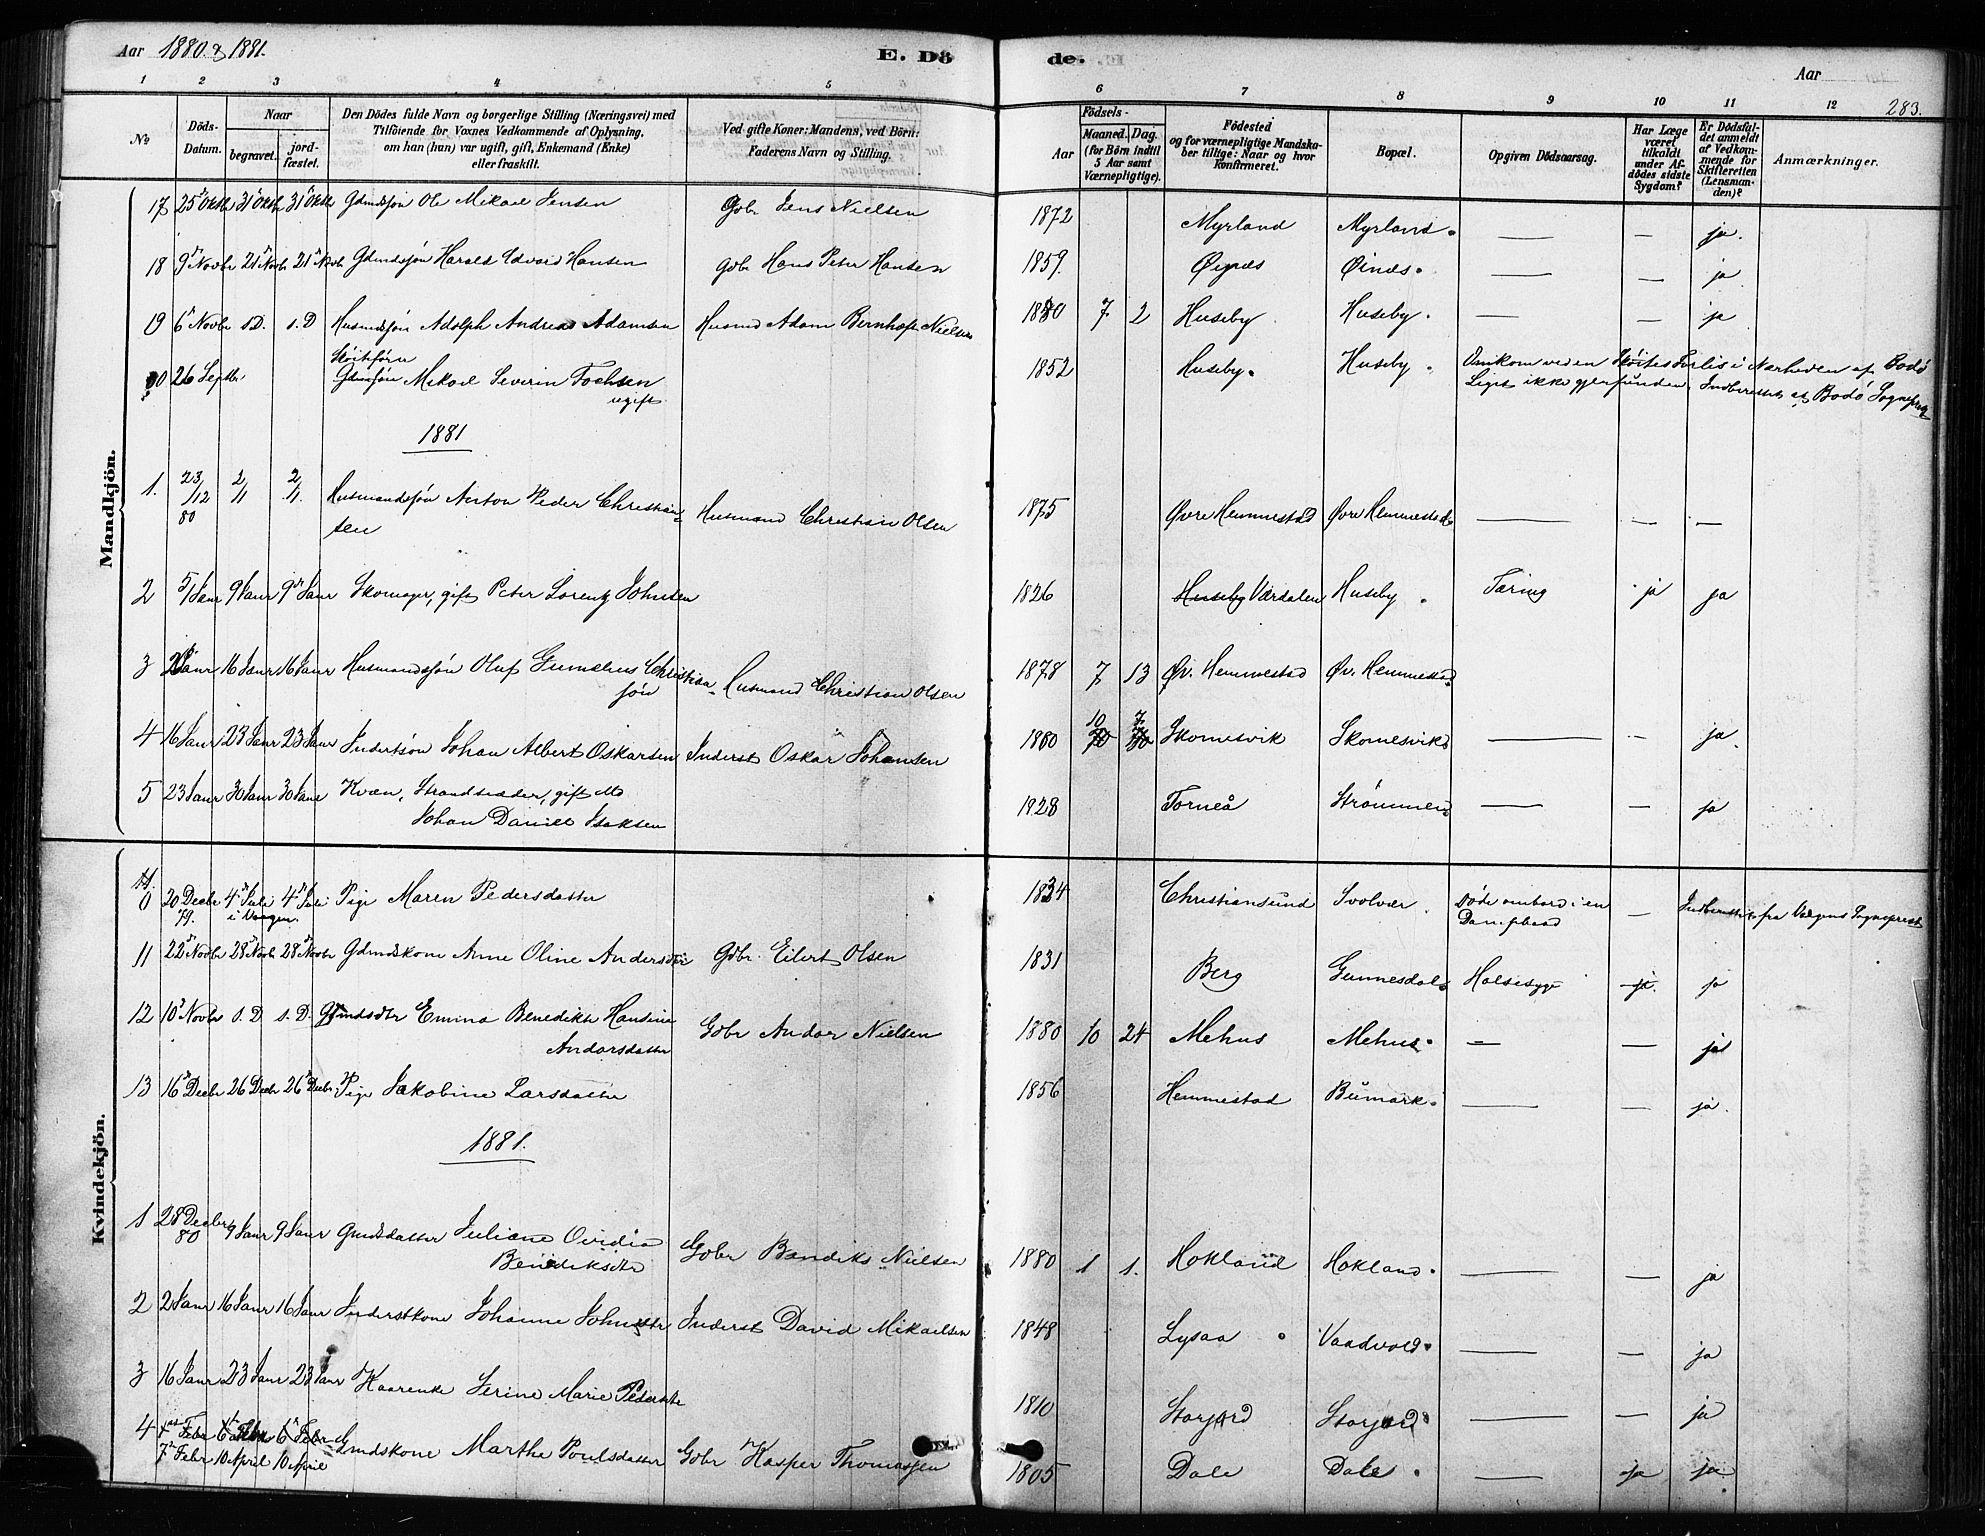 Aar 1880 & 1881.
E. Dö de.
Aar
283.
1 2 3 4 5 6 7 8 9 10 11 12
No
Döds-Datum.
Naar
begravet.
jord-fæstet.
Den Dödes fulde Navn og borgerlige Stilling (Næringsvei) med
Tilföiende for Voxnes Vedkommende af Oplysning,
om han (hun) var ugift, gift, Enkemand (Enke)
eller fraskilt.
Ved gifte Koner: Mandens, ved Börn:
Faderens Navn og Stilling.
Födsels-
Aar
Maaned. Dag.
(for Börn indtil
5 Aar samt
Værnepligtige).
Födested
og for værnepligtige Mandska-
ber tillige: Naar og hvor
Konfirmeret.
Bopæl.
Opgiven Dödsaarsag.
Har Læge
været
tilkaldt
under Af-
dödes sidste
Sygdom?
Er Dödsfal-
det anmeldt
af Vedkom-
mende for
Skifteretten
(Lensman-
den)?
Anmærkninger.
Mandkjön.
17 25 Oktb 31 Oktb 31 Oktb Gdmdssön Ole Mikael Jensen Gdbr Jens Nielsen 1872 Myrland Myrland — — ja.
18 9 Novbr 21 Novbr 21 Novbr Gdmdssön Harald Edvard Hansen Gdbr Hans Peter Hansen 1859 Öynæs Öinæs — — ja
19 6 Novbr s.D. s.D Husmdssön Adolph Andreas Adamsen Husmd Adam Bernhoft Nielsen 1880 7 2 Huseby Huseby — — ja
20 26 Septbr Sköitförer
Gdmssön Mikael Severin Tochsen
ugift 1852 Huseby Huseby Omkom ved en Sköites Forlis i Nærheden af Bodö
Liget ikke gjenfunden. Indberettet af Bodö Sognepræst
1881
1. 23/12 80 2/1 2/1 Husmandssön Anton Peder Christian-
sen Husmand Christian Olsen 1875 Övre Hemmestad Övre Hemmestad — — —
2 5/1 Janr 9 Janr 9 Janr Skomager, gift Peter Lorentz Johnsen 1826 Huseby Værdalen Huseby Tæring ja ja
3 Janr 16 Janr 16 Janr Husmandssön Oluf Gumelius Christian
sön Husmand Christian Olsen 1878 7 13 Öv. Hemmestad Öv. Hemmestad
4 16 Janr 23 Janr 23 Janr Inderstsön Johan Albert Oskarsen Inderst Oskar Johansen 1880 10 7 Skomesvik Skomesvik — — ja
5 23 Janr 30 Janr 30 Janr Kvæn, Strandsidder, gift Md
Johan Daniel Isaksen 1828 Torneå Strömmen — — ja
Kvindekjön.
10 20 Decbr 79. 4 Juli i Vaagen. 4 Juli Pige Maren Pedersdatter 1834 Christiansund Svolvær Döde ombord i en
Dampbaad — Indberettet fra Vaagens Sogneprest
11 22 Novbr 28 Novbr 28 Novbr Gdmdskone Anne Oline Andersdtr Gdbr. Eilert Olsen 1831 Berg Gunnesdal Halsesyge ja. ja
12 10 Novbr s.D s.D. Gdmdsdtr Emma Benedikte Hansine
Andorsdatter Gdbr Andor Nielsen 1880 10 24 Mehus Mehus — — ja
13 16 Decbr 26 Decbr 26 Decbr Pige Jakobine Larsdatter 1856 Hemmestad Bumark — — ja.
1881.
1 28 Decbr 80 9 Janr 9 Janr Gmdsdatter Juliane Ovidia
Bendiksdtr Gdbr Bendiks Nielsen 1880 1 1. Hokland Hokland — — ja
2 2 Janr 16 Janr 16 Janr Inderstkone Johanne Johnsdtr Inderst David Mikaelsen 1848 Lysaa Vaadvold — — ja
3 16 Janr 23 Janr 23 Janr Kaarenke Serine Marie Pedersdtr 1810 Storjord Storjord — — ja
4 Febr 6 Febr 6 Febr
7 Febr 10 April 10 April Gmdskone Marthe Poulsdatter Gdbr Kasper Thomassen 1805 Dale Dale — ja ja